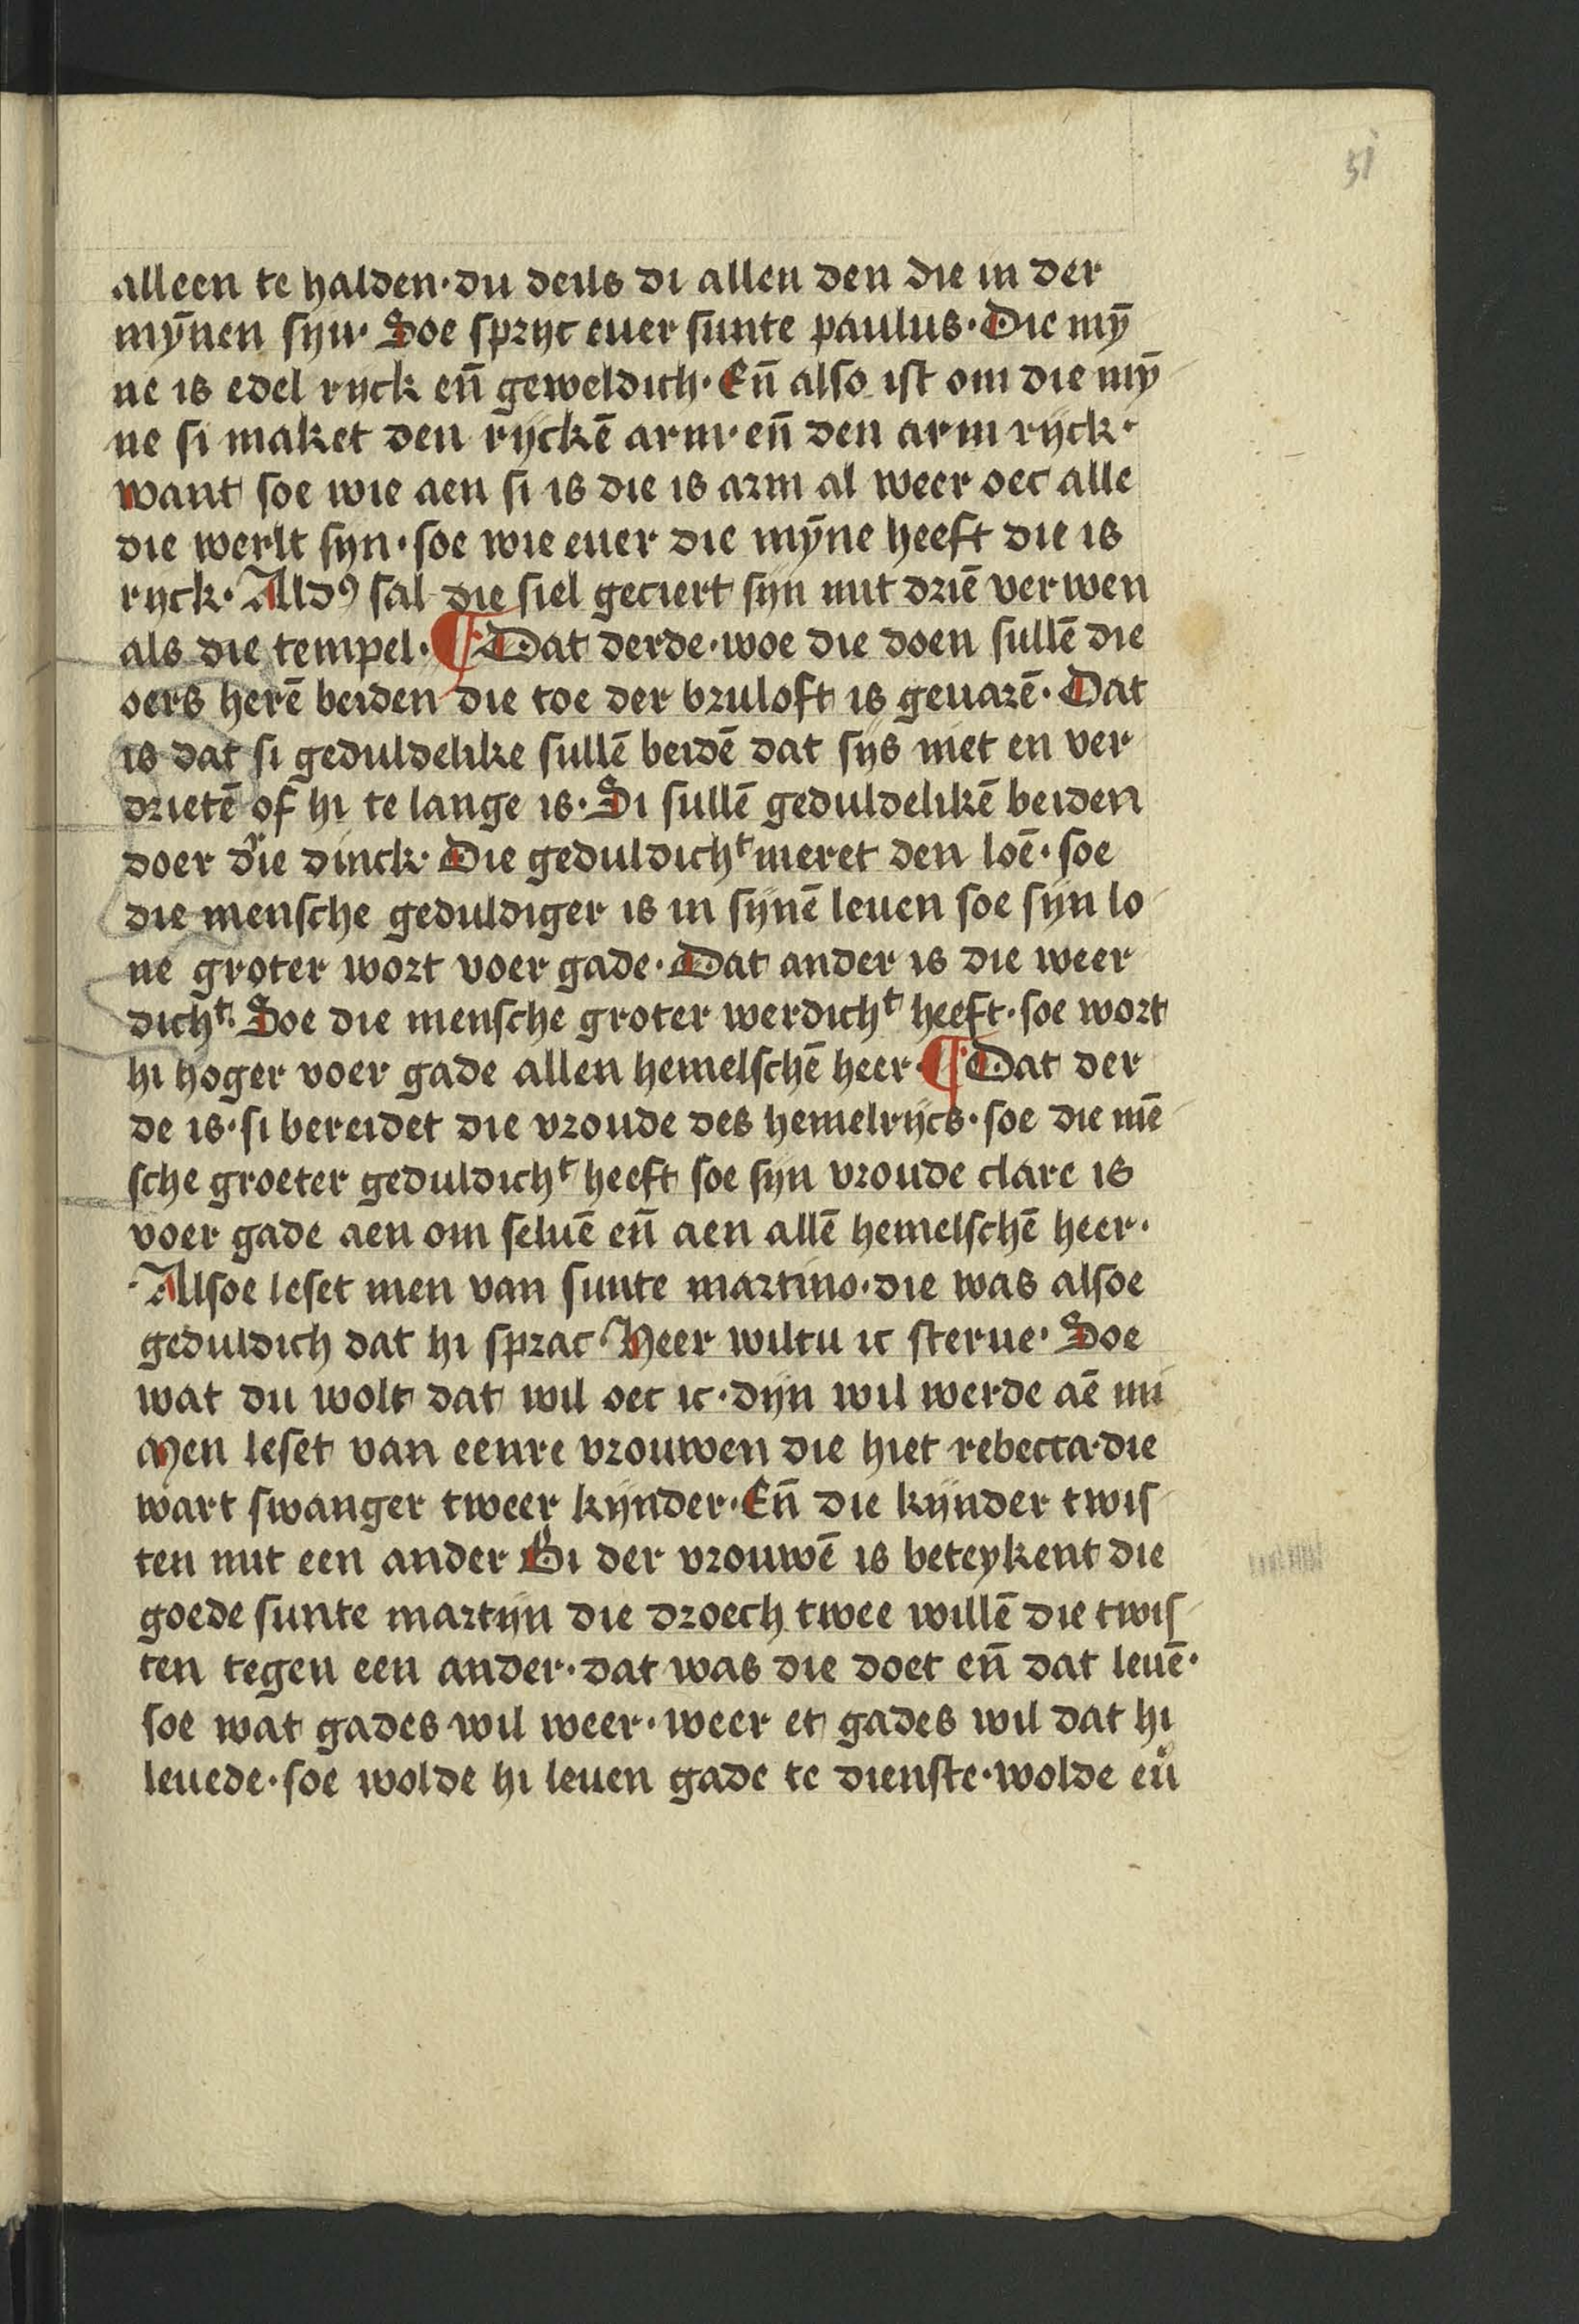 51
alleen te halden· du deils di allen den die in der
mȳnen ſijn· Soe ſpryc euer ſunte paulus· Die mȳ
ne is edel ryck en̄ geweldich· En̄ alſo iſt om die mȳ
ne ſi maket den rijckē arm· en̄ den arm rijck·
want ſoe wie aen ſi is die is arm al weer oec alle
die werlt ſyn· ſoe wie euer die mȳne heeft die is
ryck· Aldꝰ ſal die ſiel geciert ſijn mit driē verwen
als die tempel· ¶ Dat derde· woe die doen ſullē die
oers herē beiden die toe der bruloft is geuarē· Dat
is dat ſi geduldelike ſullē beidē dat ſijs niet en ver
drietē of hi te lange is· Si ſullē geduldelikē beiden
doer drie dinck· Die geduldichᵗ meret den loē· ſoe
die menſche geduldiger is in ſijnē leuen ſoe ſijn lo
ne groter wort voer gade· Dat ander is die weer
dichᵗ· Soe die menſche groter werdichᵗ heeft· ſoe wort
hi hoger voer gade allen hemelſchē heer· ¶ Dat der
de is· ſi bereidet die vroude des hemelrijcs· ſoe die mē
ſche groeter geduldichᵗ heeft ſoe ſijn vroude clare is
voer gade aen om ſeluē en̄ aen allē hemelſchē heer·
Allſoe leſet men van ſunte martino· die was alſoe
geduldich dat hi ſprac· Heer wiltu ic ſterue· Soe
wat du wolt dat wil oec ic· dijn wil werde aē mi
Men leſet van eenre vrouwen die hiet rebecca· die
wart ſwanger tweer kijnder· En̄ die kijnder twiſ
ten mit een ander Bi der vrouwē is beteykent die
goede ſunte martijn die droech twee willē die twiſ
ten tegen een ander· dat was die doet en̄ dat leuē·
ſoe wat gades wil weer· weer et gades wil dat hi
leuede· ſoe wolde hi leuen gade te dienſte· wolde eu̇